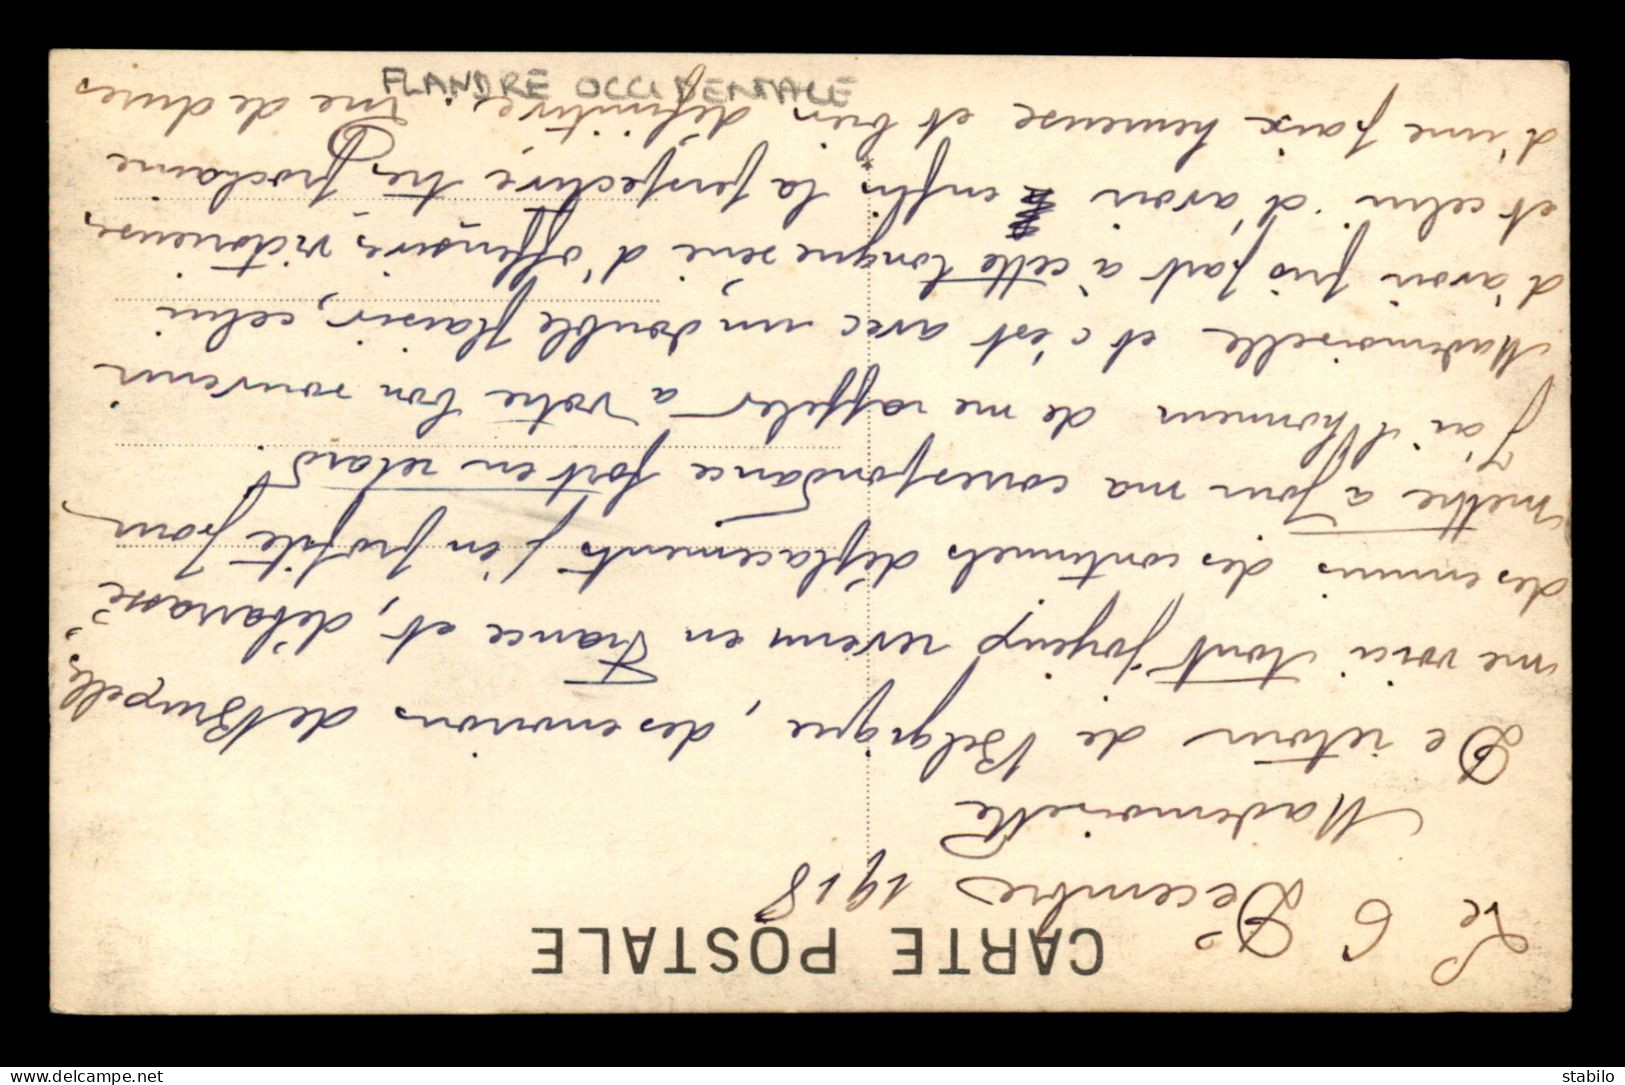 CARTE POSTALE
Le 6 Décembre 1918
Mademoiselle
De retour de Belgique, des environs de Bruxelles,
me voici tout joyeux revenu en France et, débarassé
des ennuis des continuels déplacements j'en profite pour
mettre à jour ma correspondance fort en retard.
J'ai l'honneur de me rappeler à votre bon souvenir
Mademoiselle et c'est avec un double plaisir, celui
d'avoir pris part à cette longue série d'offensives victorieuses
et celui d'avoir enfin la perspective très prochaine
d'une paix heureuse et bien définitive. Que de dures
FLANDRE OCCIDENTALE
stabilo